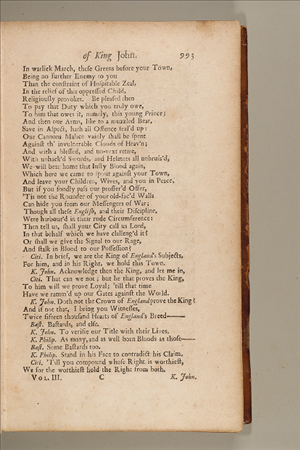 of King John. 993
In warlick March, these Greens before your Town,
Being no further Enemy to you
Than the constraint of Hospitable Zeal,
In the relief of this oppressed Child,
Religiously provokes. Be pleased then
To pay that Duty which you truly owe,
To him that owes it, namely, this young Prince;
And then our Arms, like to a muzzled Bear,
Save in Aspect, hath all Offence seal'd up:
Our Cannons Malice vainly shall be spent
Against th' invulnerable Clouds of Heav'n;
And with a blessed, and un-vext retire,
With unhack'd Swords, and Helmets all unbruis'd,
We will bear home that lusty Blood again,
Which here we came to spout against your Town,
And leave your Children, Wives, and you in Peace.
But if you fondly pass our proffer'd Offer,
'Tis not the Rounder of your old-fac'd Walls
Can hide you from our Messengers of War;
Though all these English, and their Discipline,
Were harbour'd in their rude Circumference:
Then tell us, shall your City call us Lord,
In that behalf which we have challeng'd it?
Or shall we give the Signal to our Rage,
And stalk in Blood to our Possession?
Citi. In brief, we are the King of England's Subjects,
For him, and in his Right, we hold this Town.
K. John. Acknowledge then the King, and let me in.
Citi. That can we not; but he that proves the King,
To him will we prove Loyal; 'till that time
Have we ramm'd up our Gates against the World.
K. John. Doth not the Crown of England prove the King?
And if not that, I bring you Witnesses,
Twice fifteen thousand Hearts of England's Breed——
Bast. Bastards, and else.
K. John. To verifie our Title with their Lives.
K. Philip. As many, and as well born Bloods as those——
Bast. Some Bastards too.
K. Philip. Stand in his Face to contradict his Claim.
Citi. 'Till you compound whose Right is worthiest,
We for the worthiest hold the Right from both.
VOL. III. C K. John.